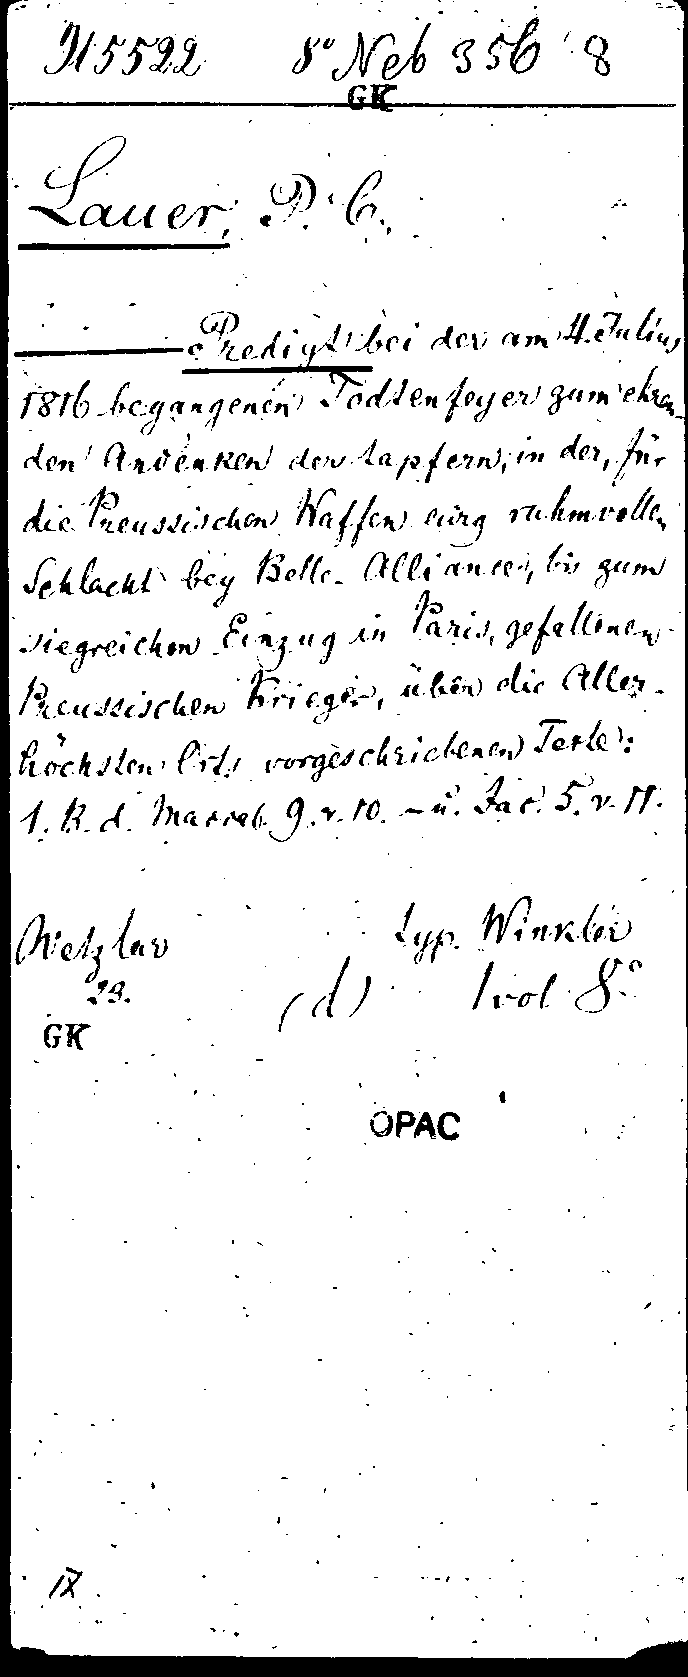 N 5522 8° Neb 356 8
GK
Lauer, P. C.
Predigt bei der am 4. Julius
1816 begangenen Todtenfeyer zum ehren-
den Andenken der tapfern, in der, für
die Preussischen Waffen ewig ruhmvollen
Schlacht bey Belle-Alliance, bis zum
siegreichen Einzug in Paris, gefallenen
Preussischen Krieger, über die Aller-
höchsten Orts vorgeschriebenen Texte:
1. B. d. Maccab. 9. v. 10. – u. Jac. 5. v. 11.
Wetzlar typ. Winkler
23. (d) 1 vol 8°
GK
OPAC